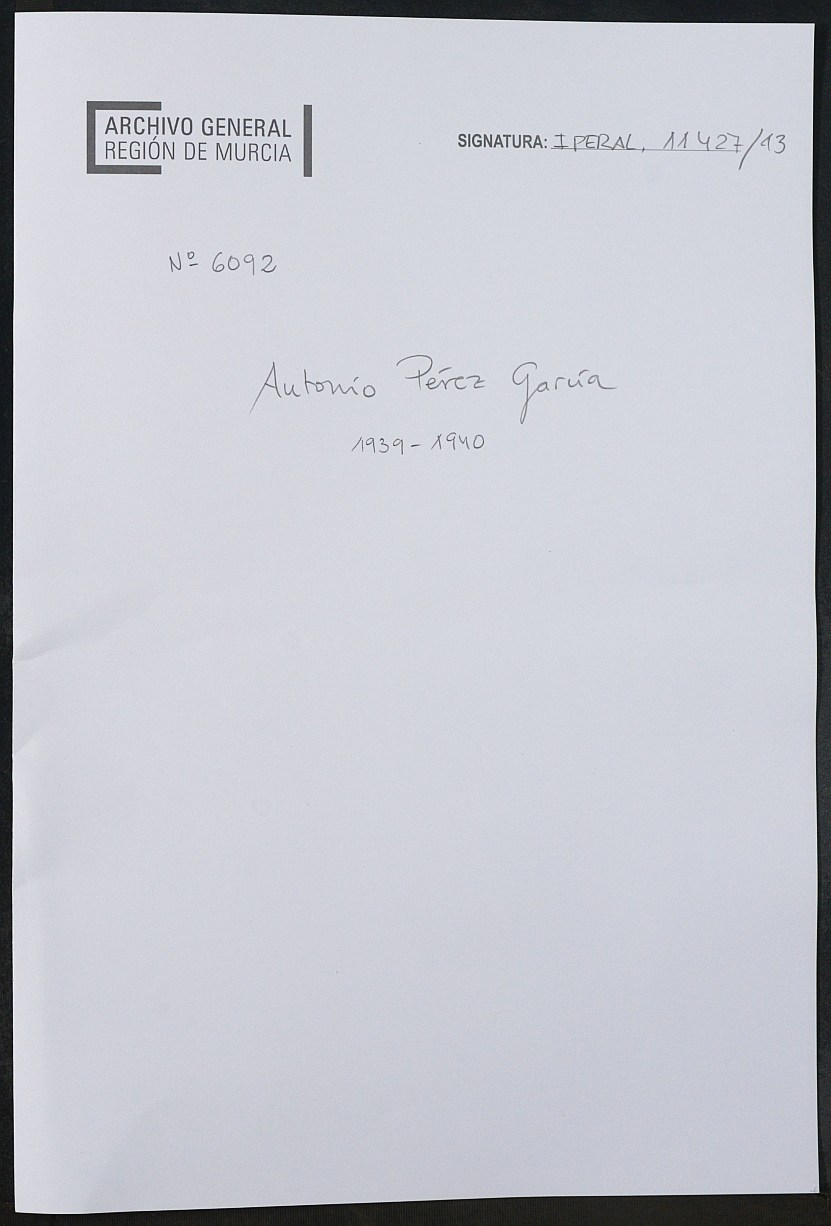 ARCHIVO GENERAL
REGIÓN DE MURCIA
SIGNATURA: IPERAL, 11427/13
Nº 6092
Antonio Pérez García
1939-1940